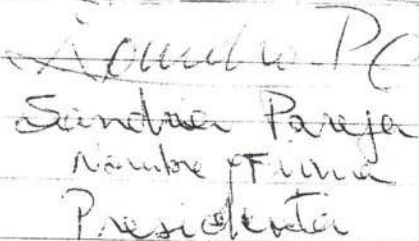 Sandra P C
Sandra Pareja
Nombre y Firma
Presidenta